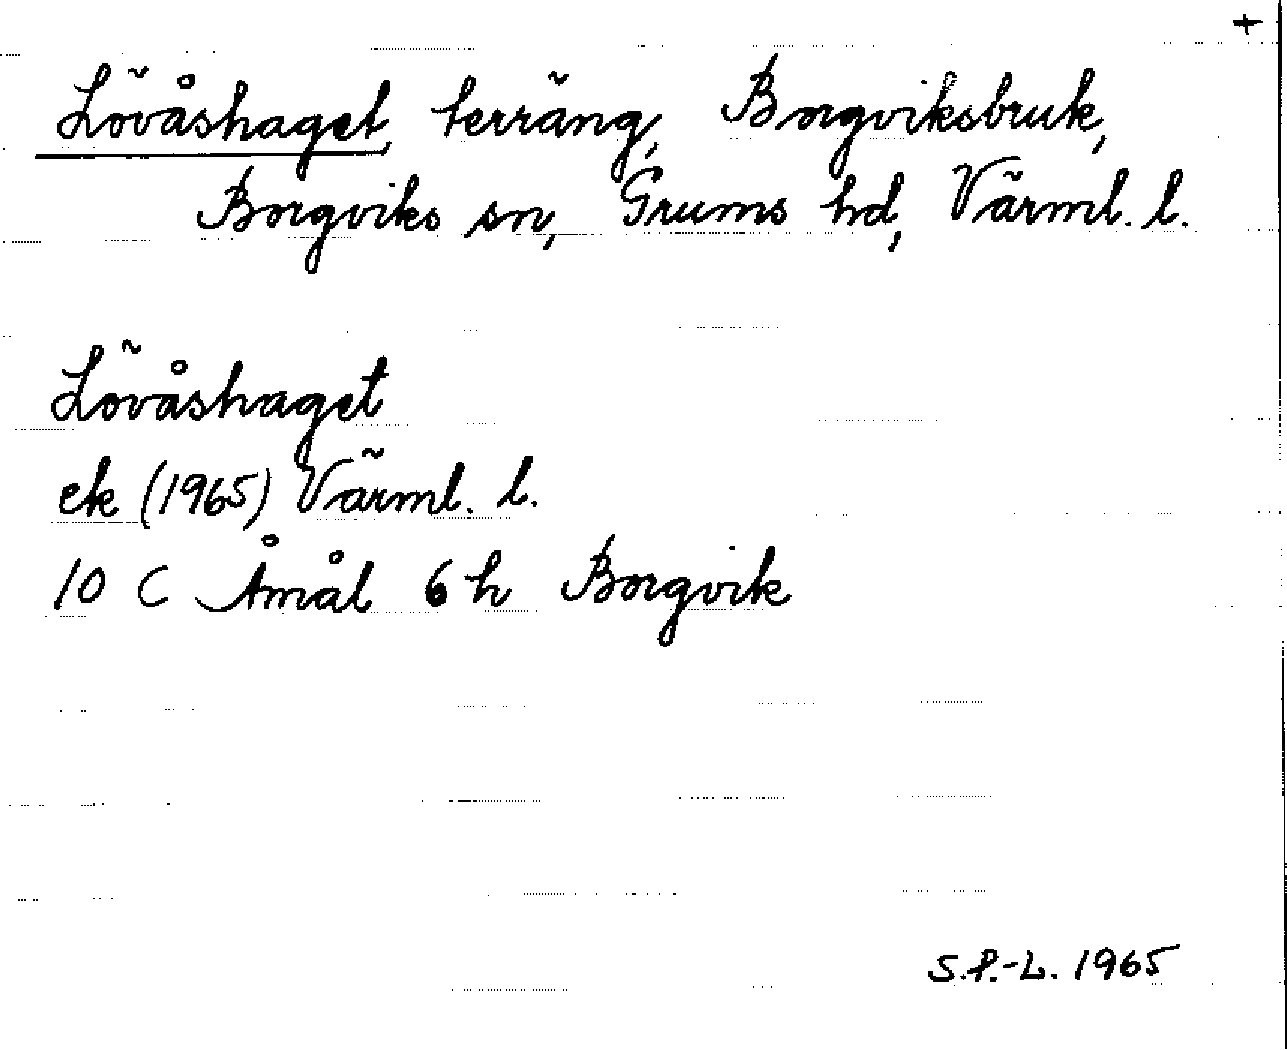 +
Lövåshaget, terräng, Borgviksbruk,
Borgviks sn, Grums hd, Värml. l.
Lövåshaget
ek (1965) Värml. l.
10 C Åmål 6 h Borgvik
S.P.-L. 1965